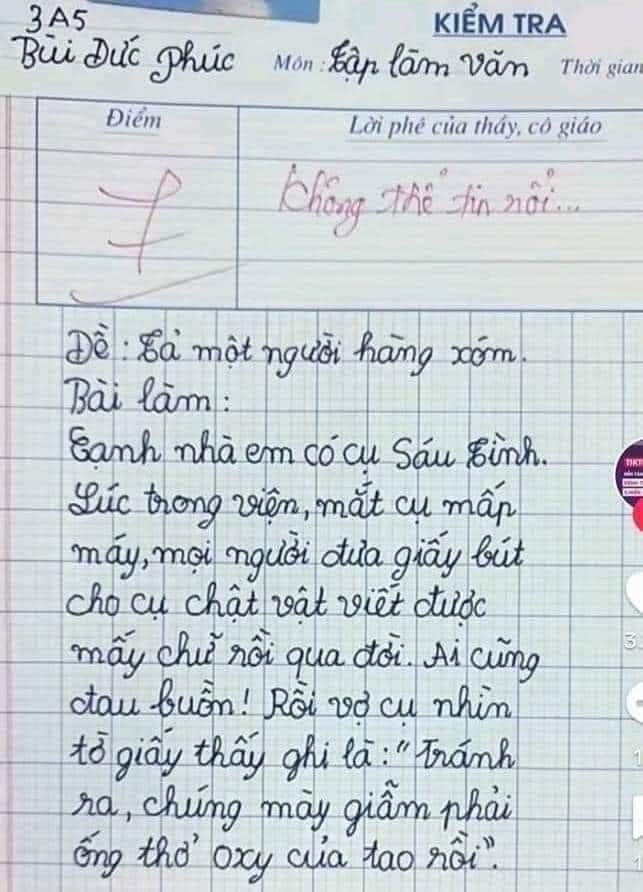 3A5
KIỂM TRA
Bùi Đức Phúc Môn: Tập làm văn Thời gian
Điểm
Lời phê của thầy, cô giáo
Không thể tin nổi...
Đề: Tả một người hàng xóm.
Bài làm:
Cạnh nhà em có cụ Sáu Bình.
Lúc trong viện, mắt cụ mấp
máy, mọi người đưa giấy bút
cho cụ chật vật viết được
mấy chữ rồi qua đời. Ai cũng
đau buồn! Rồi vợ cụ nhìn
tờ giấy thấy ghi là: "Tránh
ra, chúng mày giẫm phải
ống thở oxy của tao rồi".